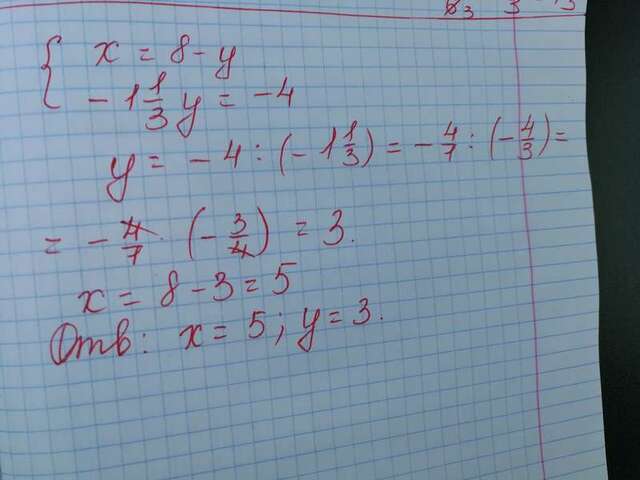 { x = 8 - y
- 1 1/3 y = -4
y = -4 : (-1 1/3) = -4/7 : (-4/3) =
= -4/7 · (-3/4) = 3.
x = 8 - 3 = 5
Отв: x = 5; y = 3.